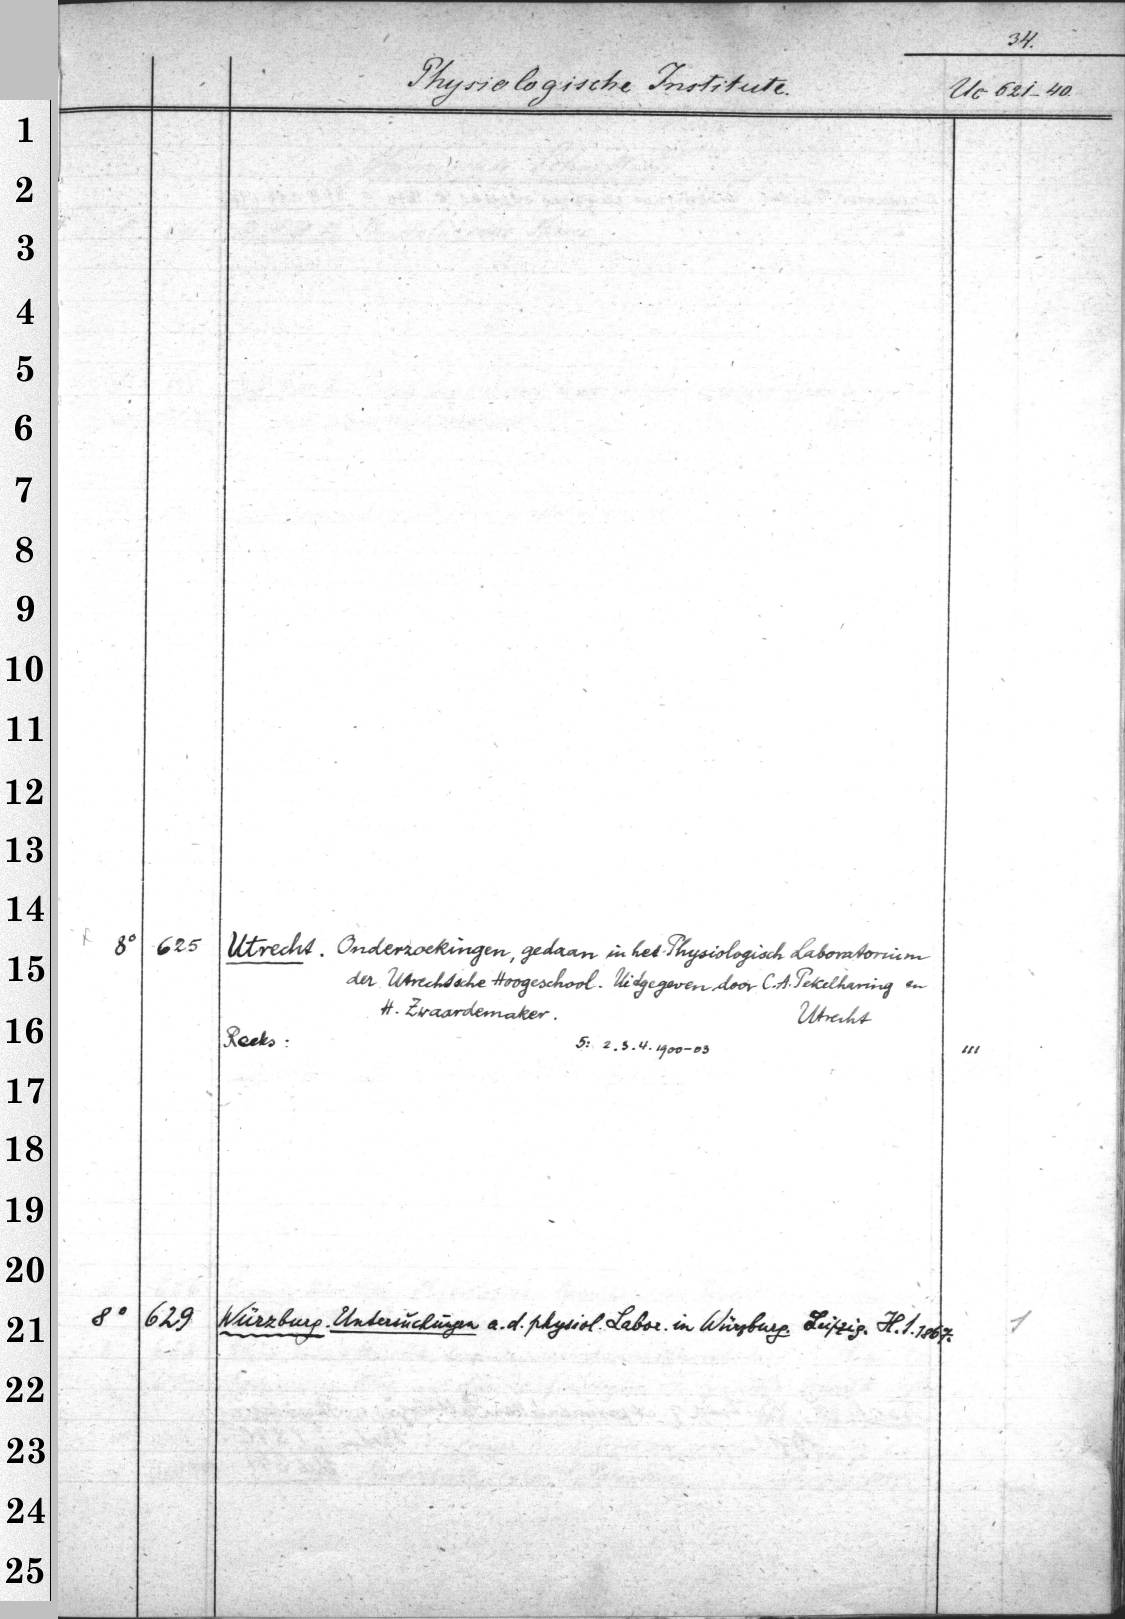 34.
Physiologische Institute.
Uc 621-40.
1
2
3
4
5
6
7
8
9
10
11
12
13
14
8° 625 Utrecht. Onderzoekingen, gedaan in het Physiologisch Laboratorium
15
der Utrechtsche Hoogeschool. Uitgegeven door C.A. Pekelharing en
H. Zwaardemaker. Utrecht
16
Reeks: 5: 2.3.4. 1900-03 ///
17
18
19
20
8° 629 Würzburg. Untersuchungen a. d. physiol. Labor. in Würzburg. Leipzig. H.1. 1867. 1
21
22
23
24
25